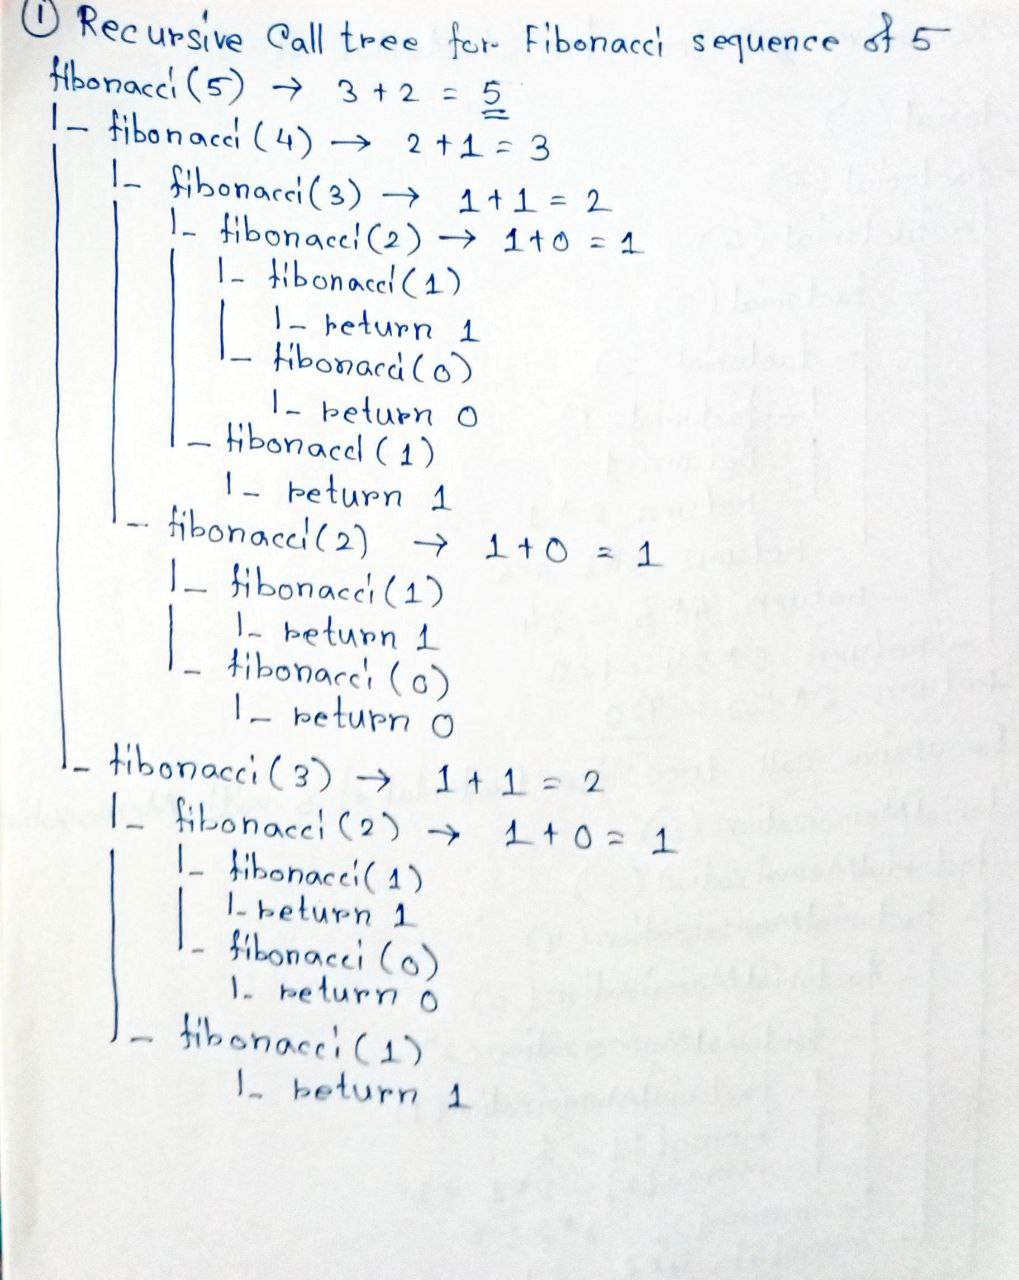 ① Recursive Call tree for Fibonacci sequence of 5
fibonacci(5) → 3 + 2 = 5
|- fibonacci(4) → 2 + 1 = 3
|- fibonacci(3) → 1 + 1 = 2
|- fibonacci(2) → 1 + 0 = 1
|- fibonacci(1)
|- return 1
|- fibonacci(0)
|- return 0
|- fibonacci(1)
|- return 1
|- fibonacci(2) → 1 + 0 = 1
|- fibonacci(1)
|- return 1
|- fibonacci(0)
|- return 0
|- fibonacci(3) → 1 + 1 = 2
|- fibonacci(2) → 1 + 0 = 1
|- fibonacci(1)
|- return 1
|- fibonacci(0)
|- return 0
|- fibonacci(1)
|- return 1